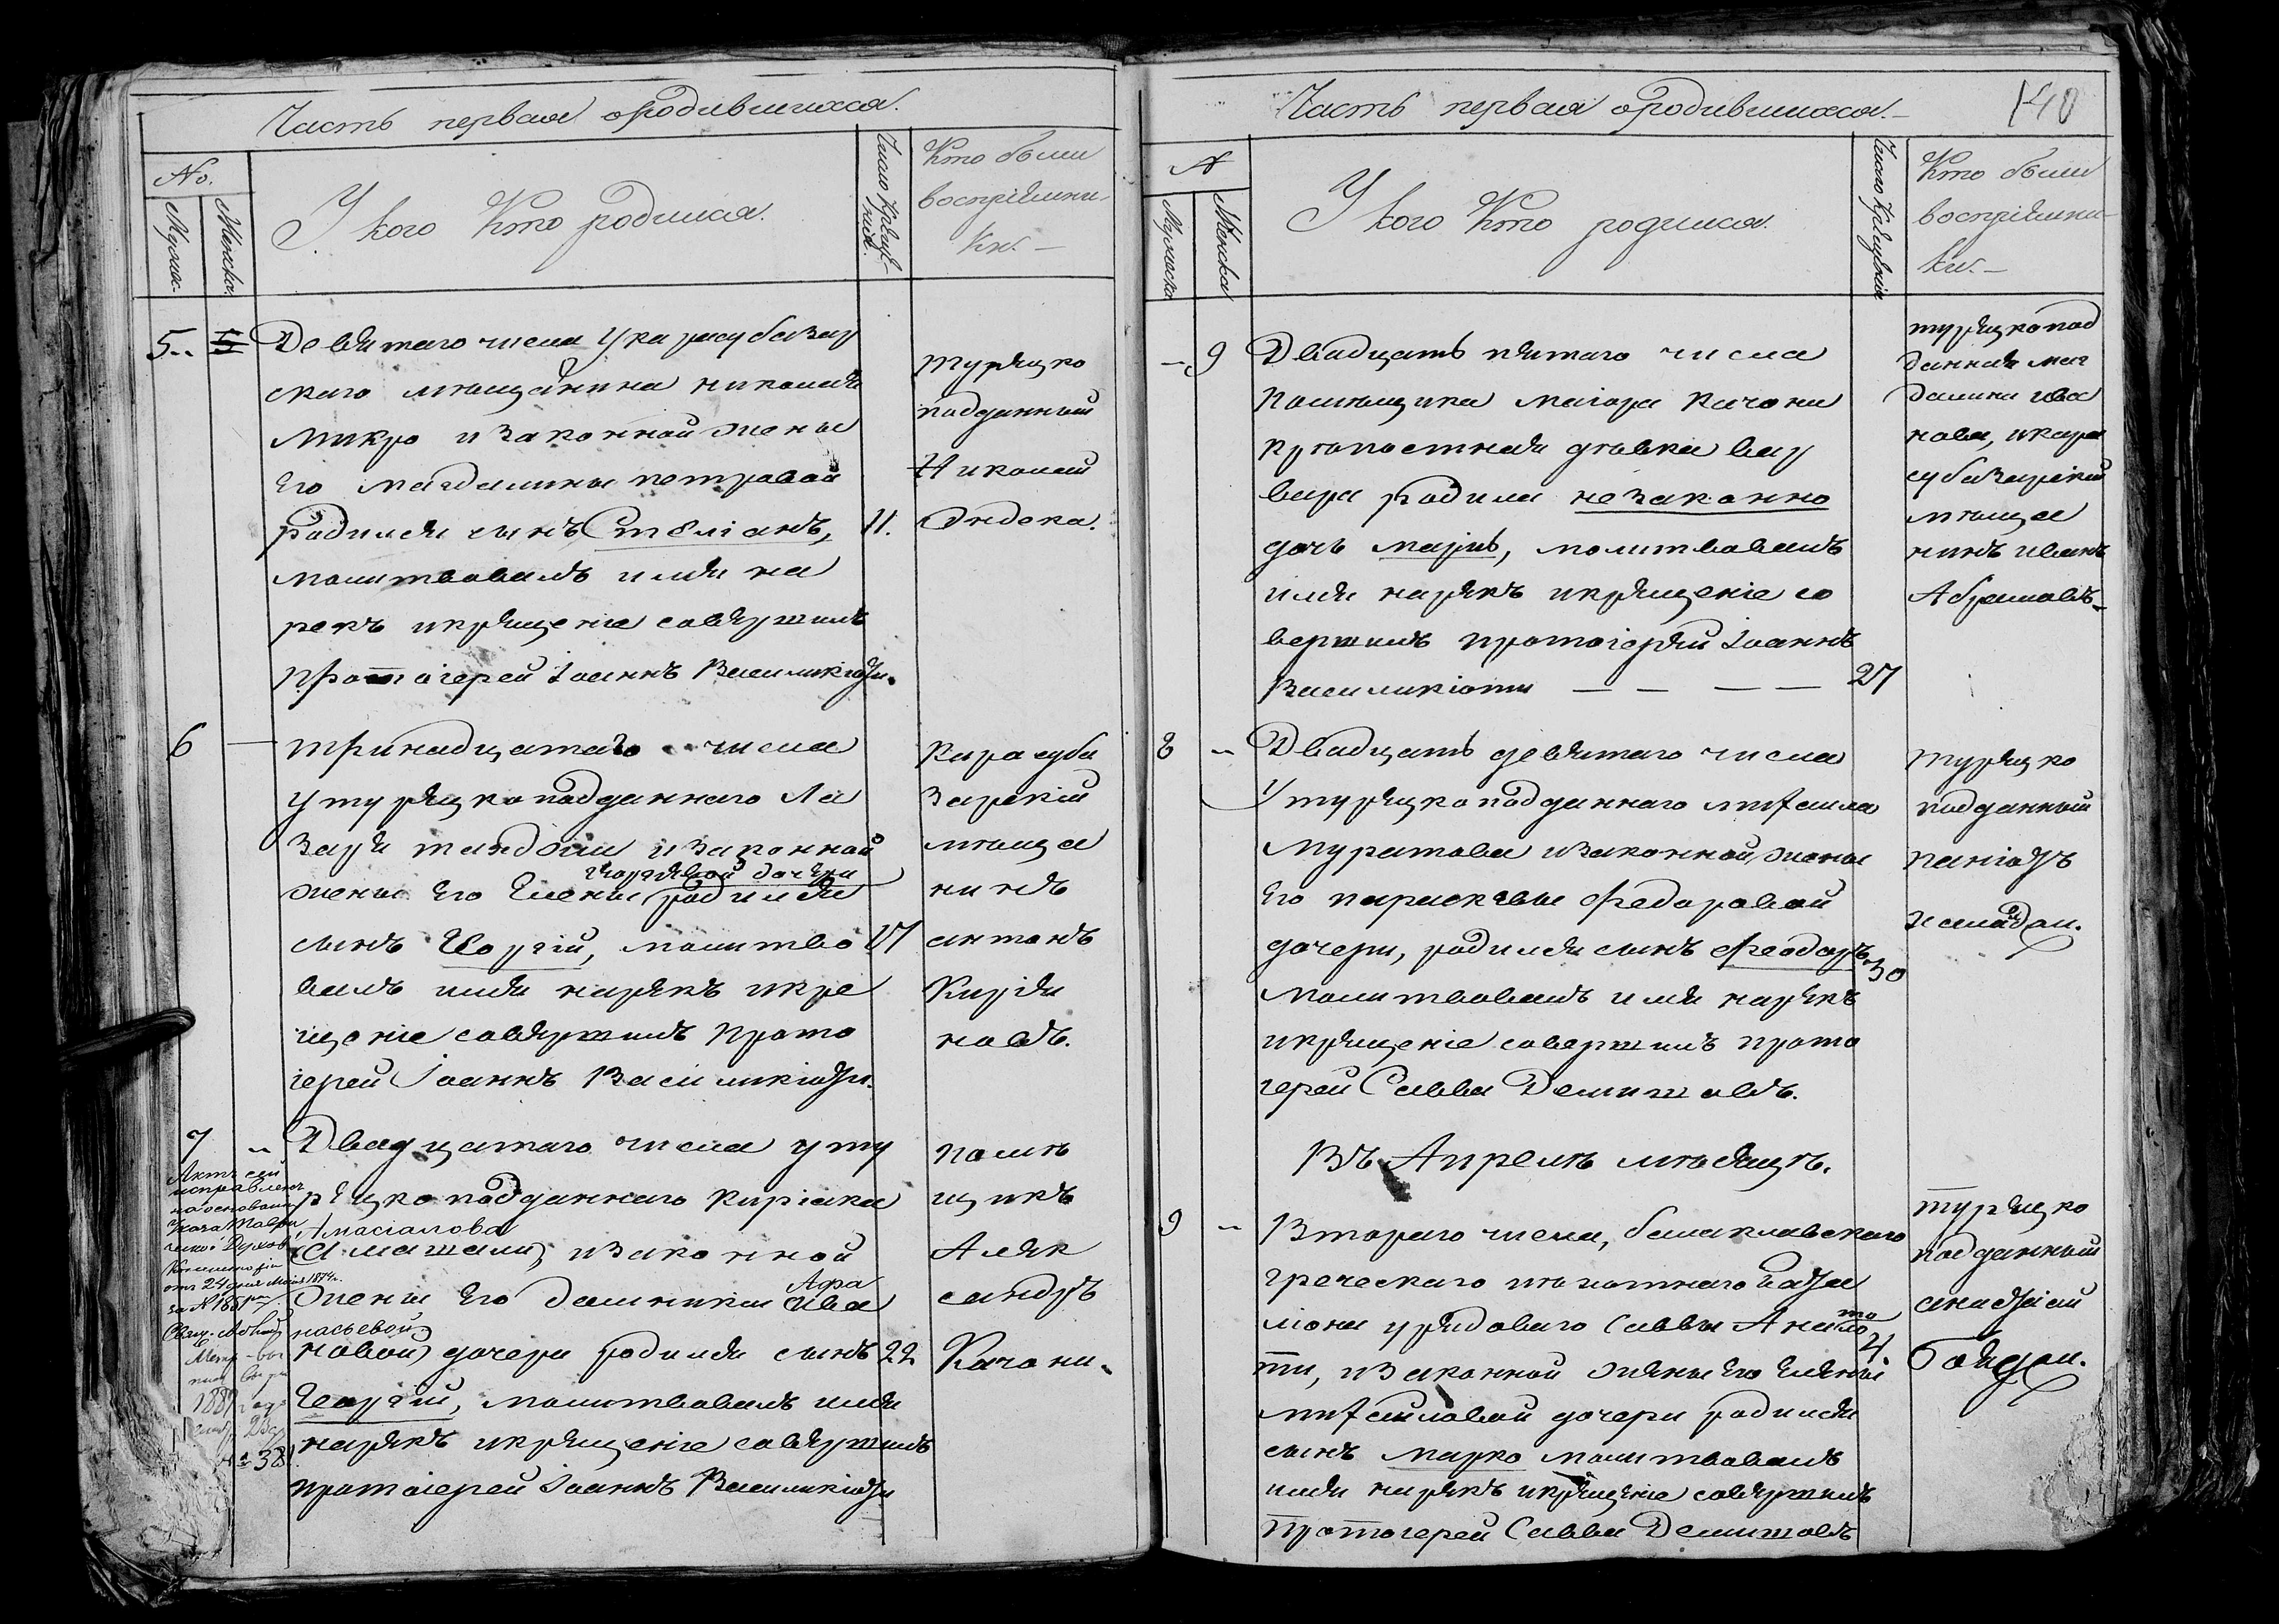 Часть первая о родившихся.
No.
Мужск.
Женска.
У кого Кто родился.
Число Крещения.
Кто были
воспріемни-
ки. —
5.. 5
Девятаго числа у карасубазар
скаго мѣщанина николая
Микро и законной жены
Его Магдалины петровой
родился сынъ Стеліанъ, 11.
молитвовалъ имя на
рекъ и крещеніе совершилъ
Протоіерей Іоаннъ Василикіоти.
турецко
подданный
Николай
6 —
тринадцатаго числа
у турецкоподданнаго Ла
заря и законной
георгіевой дочери
жены Его Елены родился
сынъ Георгій, молитво 17
валъ имя нарекъ и кре
щеніе совершилъ прото
іерей Іоаннъ Василикіоти.
Карасуба
зарскій
мѣща
нинъ
антонъ
Кирія
ковъ.
7 "
Двадцатаго числа у ту
рецкоподданнаго Киріака
Амасіалова
(Амашали) и законной
Афа
жены Его домникіи (Ива
насьевой
новой) дочери родился сынъ 22
Георгій, молитвовалъ имя
нарекъ и крещеніе совершилъ
протоіерей Іоаннъ Василикіоти
Актъ сей
исправленъ
на основаніи
Указа Таври
ческой Духов
Консисторіи
отъ 24 дня Маія 1874 г.
за № 1861
1887 года
№ 38
помѣ
щикъ
Алек
сандръ
Качони.
Часть первая о родившихся. —
140
N
Мужеска
Женска
У кого Кто родился.
Число Крещенія
Кто были
воспріемни-
ки. —
— 9
Двадцать пятаго числа
Помѣщика Маіора Качони
крѣпостная дѣвка вар
вара родила незаконно
дочь марію, молитвовалъ
имя нарекъ и крещеніе со
вершилъ протоіерей Іоаннъ
Василикіоти — — — — 27
турецкопод
данная маг
далина ива
нова, и кара
субазарскій
мѣща
нинъ иванъ
Абрамовъ.
8 "
Двадцать девятаго числа
У турецкоподданнаго михаила
Муратова и законной жены
Его параскевы Федоровой
дочери, родился сынъ Феодоръ, 30
молитвовалъ имя нарекъ
и крещеніе совершилъ прото
іерей Савва Демишовъ.
турецко
подданный
паніотъ
Въ Апрелѣ мѣсяцѣ.
9 "
Втораго числа, балаклавскаго
греческаго пѣхотнаго бата
ліона у рядоваго Саввы
4.
ти, и законной жены Его Елены
михайловой дочери родился
сынъ марко молитвовалъ
имя нарекъ и крещеніе совершилъ
Протоіерей Савва Демишовъ
турецко
подданный